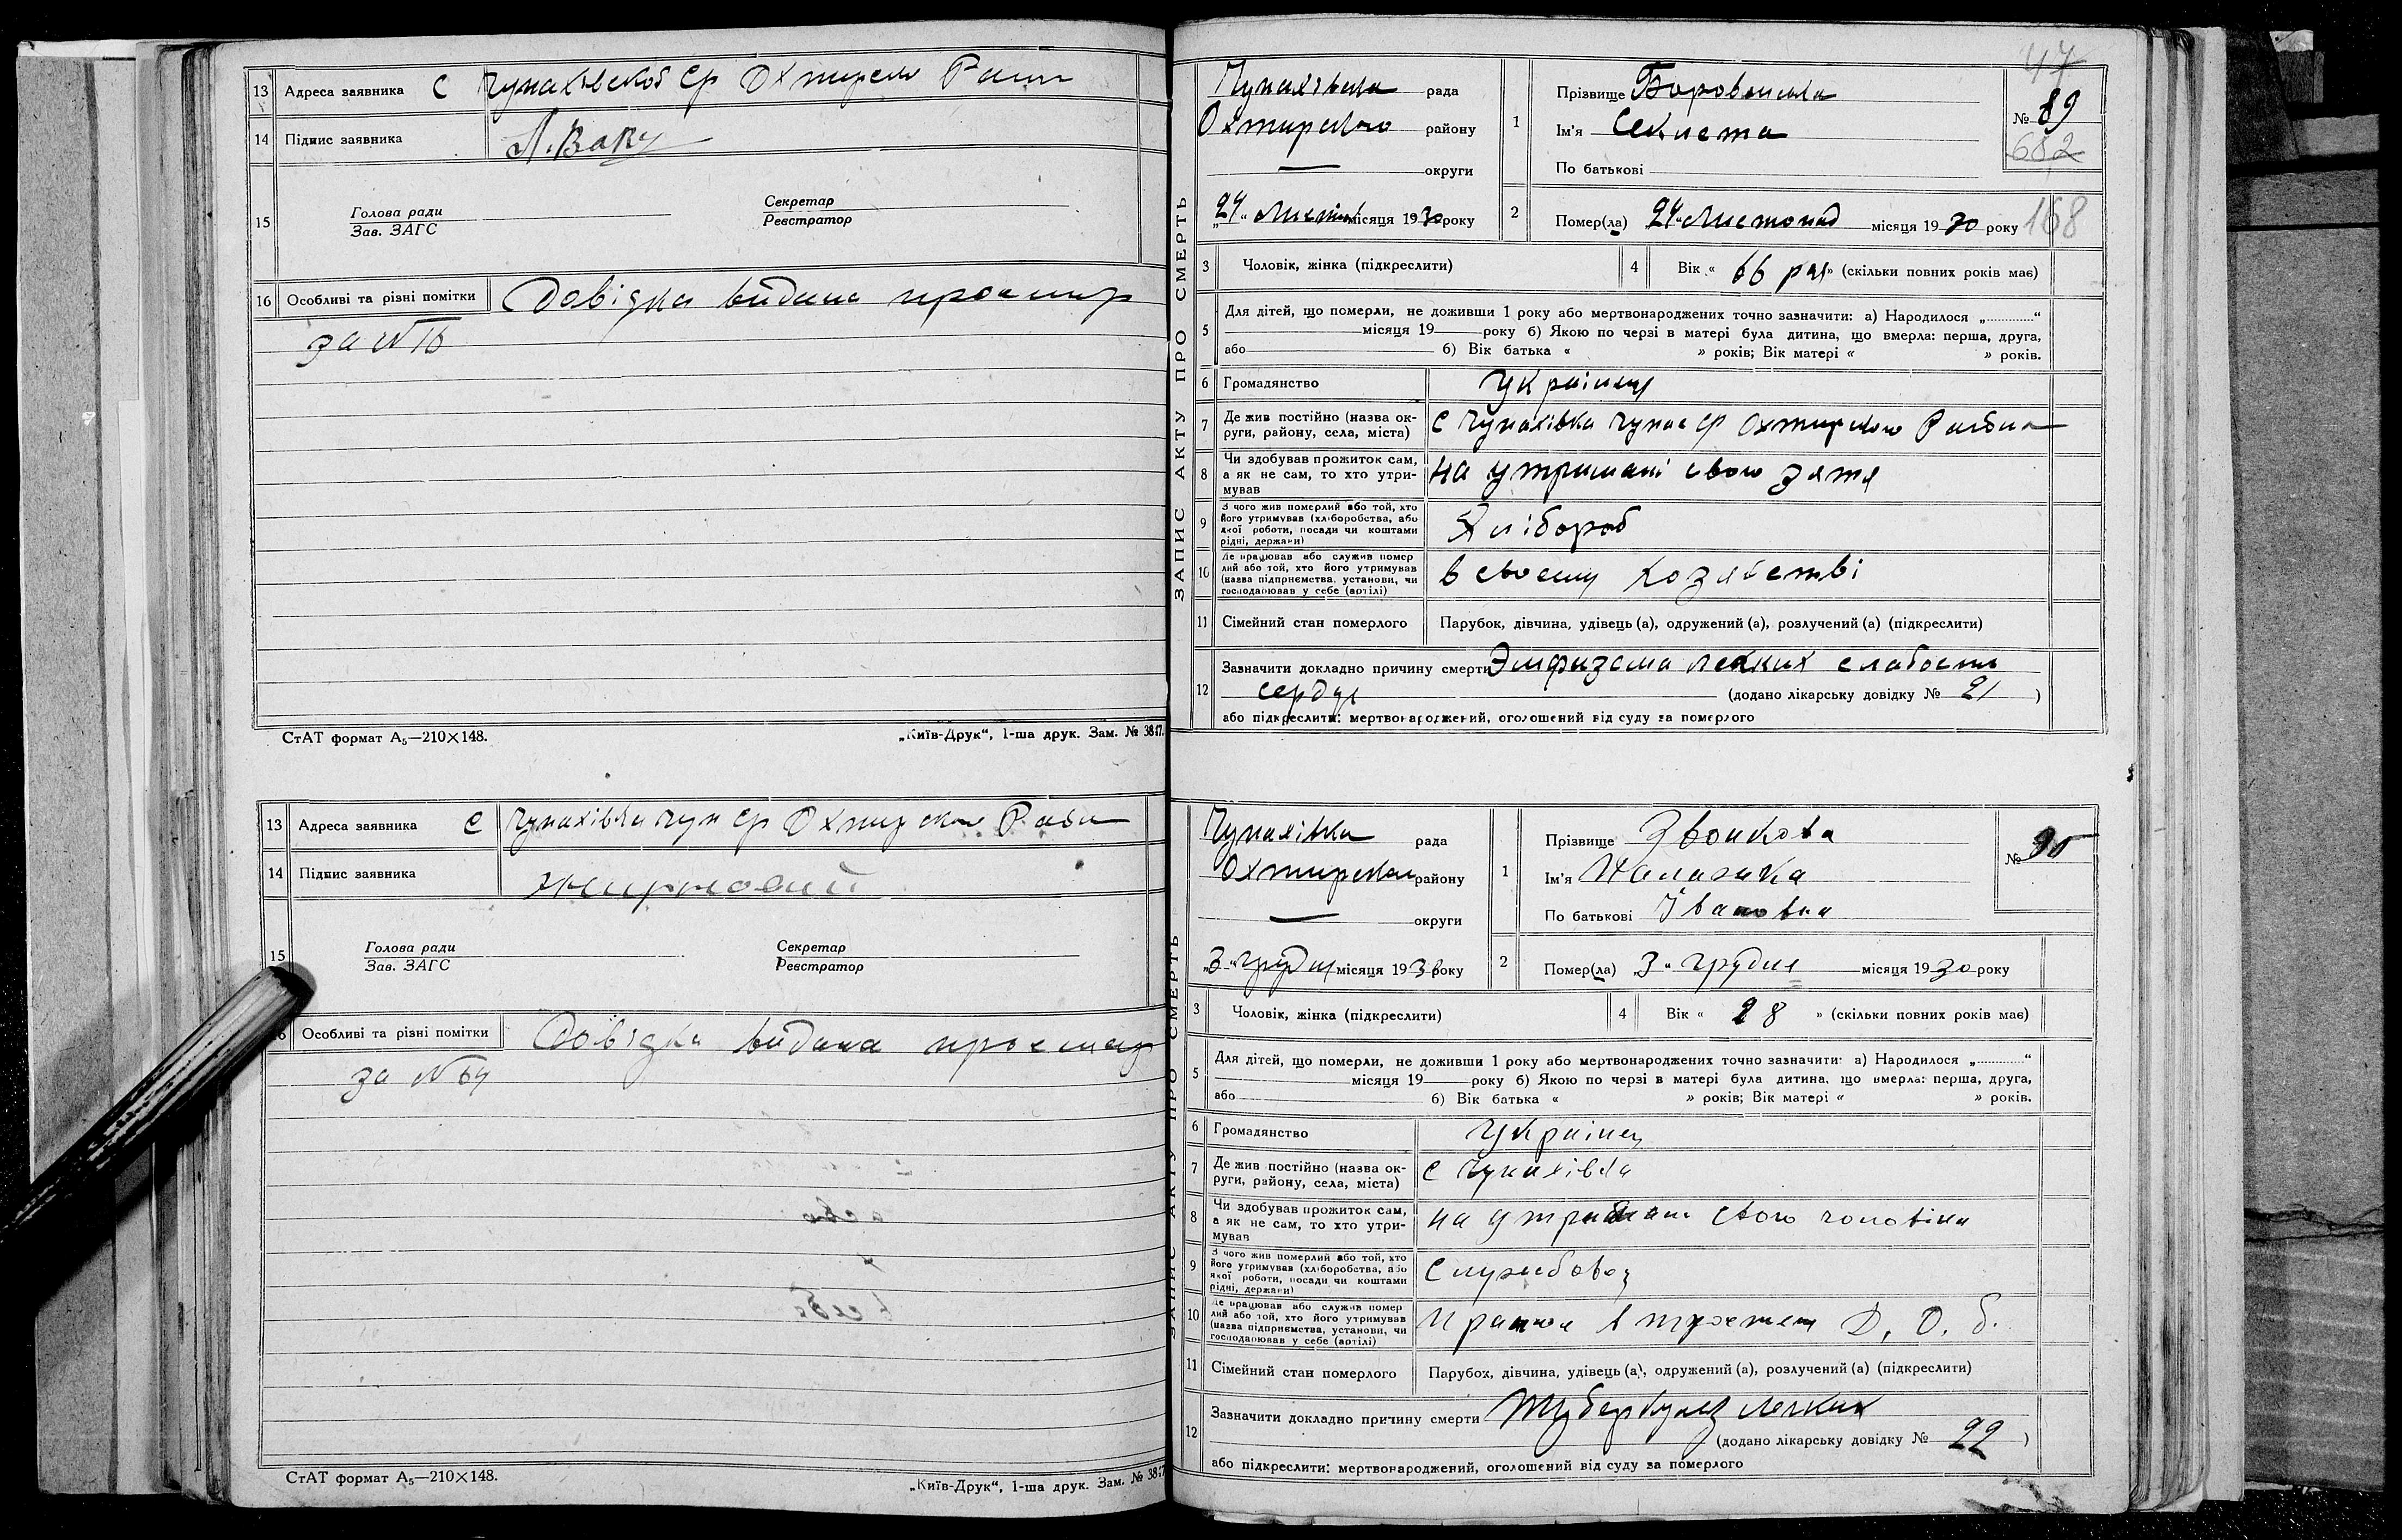 13 Адреса заявника с Чунахівской ср Охтирсько Раиц
14 Підпис заявника
15 Голова ради Секретар
Зав. ЗАГС Реєстратор
16 Особливі та різні помітки Довідка видана про смер
за №
СтАТ формат А5—210×148. „Київ-Друк“, 1-ша друк. Зам. № 3847.
13 Адреса заявника с Чунахівка чун ср Охтирского
14 Підпис заявника
15 Голова ради Секретар
Зав. ЗАГС Реєстратор
16 Особливі та різні помітки Довідка видана про смер
за № 64
СтАТ формат А5—210×148. „Київ-Друк“, 1-ша друк. Зам. № 3847
ЗАПИС АКТУ ПРО СМЕРТЬ
47
рада
Охтирсько району
— округи
„24“ місяця 1930 року
1 Прізвище
Ім'я Секлета
По батькові
№ 89
682
2 Помер(ла) „24“ Листопад місяця 1930 року 168
3 Чоловік, жінка (підкреслити) 4 Вік « 66 » (скільки повних років має)
5 Для дітей, що померли, не доживши 1 року або мертвонароджених точно зазначити: а) Народилося „............“
місяця 19 року б) Якою по черзі в матері була дитина, що вмерла: перша, друга,
або б) Вік батька « » років; Вік матері « » років.
6 Громадянство Украінец
7 Де жив постійно (назва округи, району, села, міста) с Чунахівка чунах ср Охтирского Района
8 Чи здобував прожиток сам, а як не сам, то хто утримував на утримані свого зятя
9 З чого жив померлий або той, хто його утримував (хліборобства, або якої роботи, посади чи коштами рідні, держави) Хлібороб
10 Де працював або служив померлий або той, хто його утримував (назва підприємства, установи, чи господарював у себе (артілі) в своєму хозяйстві
11 Сімейний стан померлого Парубок, дівчина, удівець (а), одружений (а), розлучений (а) (підкреслити)
12 Зазначити докладно причину смерти Эмфизема легких слабость
сердця (додано лікарську довідку № 21 )
або підкреслити: мертвонароджений, оголошений від суду за померлого
ЗАПИС АКТУ ПРО СМЕРТЬ
Чунахівка рада
Охтирского району
— округи
„3“ грудня місяця 1930 року
1 Прізвище Звонкова
Ім'я
По батькові Івановна
№ 90
2 Помер(ла) „3“ грудня місяця 1930 року
3 Чоловік, жінка (підкреслити) 4 Вік « 28 » (скільки повних років має)
5 Для дітей, що померли, не доживши 1 року або мертвонароджених точно зазначити: а) Народилося „............“
місяця 19 року б) Якою по черзі в матері була дитина, що вмерла: перша, друга,
або б) Вік батька « » років; Вік матері « » років.
6 Громадянство Украінец
7 Де жив постійно (назва округи, району, села, міста) с Чунахівка
8 Чи здобував прожиток сам, а як не сам, то хто утримував на утримані свого чоловіка
9 З чого жив померлий або той, хто його утримував (хліборобства, або якої роботи, посади чи коштами рідні, держави) Службовец
10 Де працював або служив померлий або той, хто його утримував (назва підприємства, установи, чи господарював у себе (артілі) в
11 Сімейний стан померлого Парубок, дівчина, удівець (а), одружений (а), розлучений (а) (підкреслити)
12 Зазначити докладно причину смерти Туберкулез легких
(додано лікарську довідку № 22 )
або підкреслити: мертвонароджений, оголошений від суду за померлого